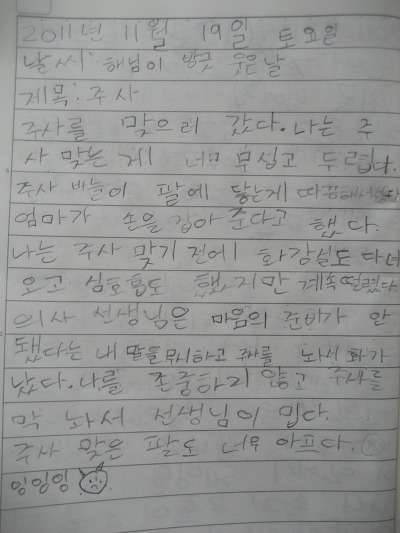 2011년 11월 19일 토요일
날씨: 해님이 방긋 웃은 날
제목: 주사
주사를 맞으러 갔다. 나는 주
사 맞는 게 너무 무섭고 두렵다.
주사 바늘이 팔에 닿는게 따끔해서
엄마가 손을 잡아 준다고 했다.
나는 주사 맞기 전에 화장실도 다녀
오고 심호흡도 했지만 계속 떨렸다.
의사 선생님은 마음의 준비가 안
됐다는 내 말을 무시하고 주사를 놔서 화가
났다. 나를 존중하지 않고 주사를
막 놔서 선생님이 밉다.
주사 맞은 팔도 너무 아프다.
잉잉잉